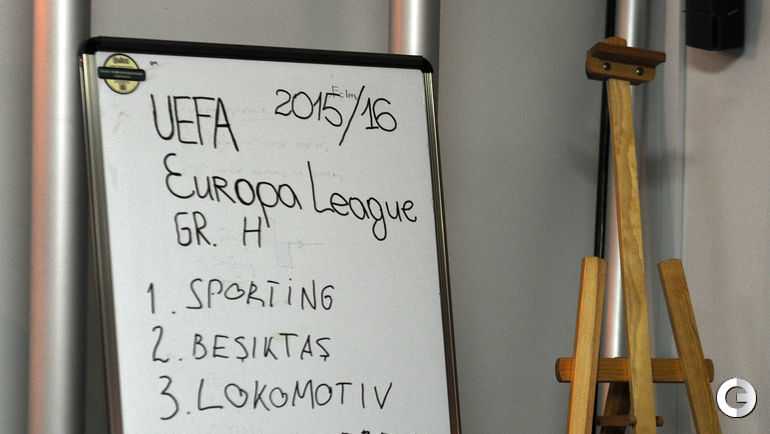 UEFA 2015/16
Europa League
GR. H
1. SPORTING
2. BEŞIKTAŞ
3. LOKOMOTIV